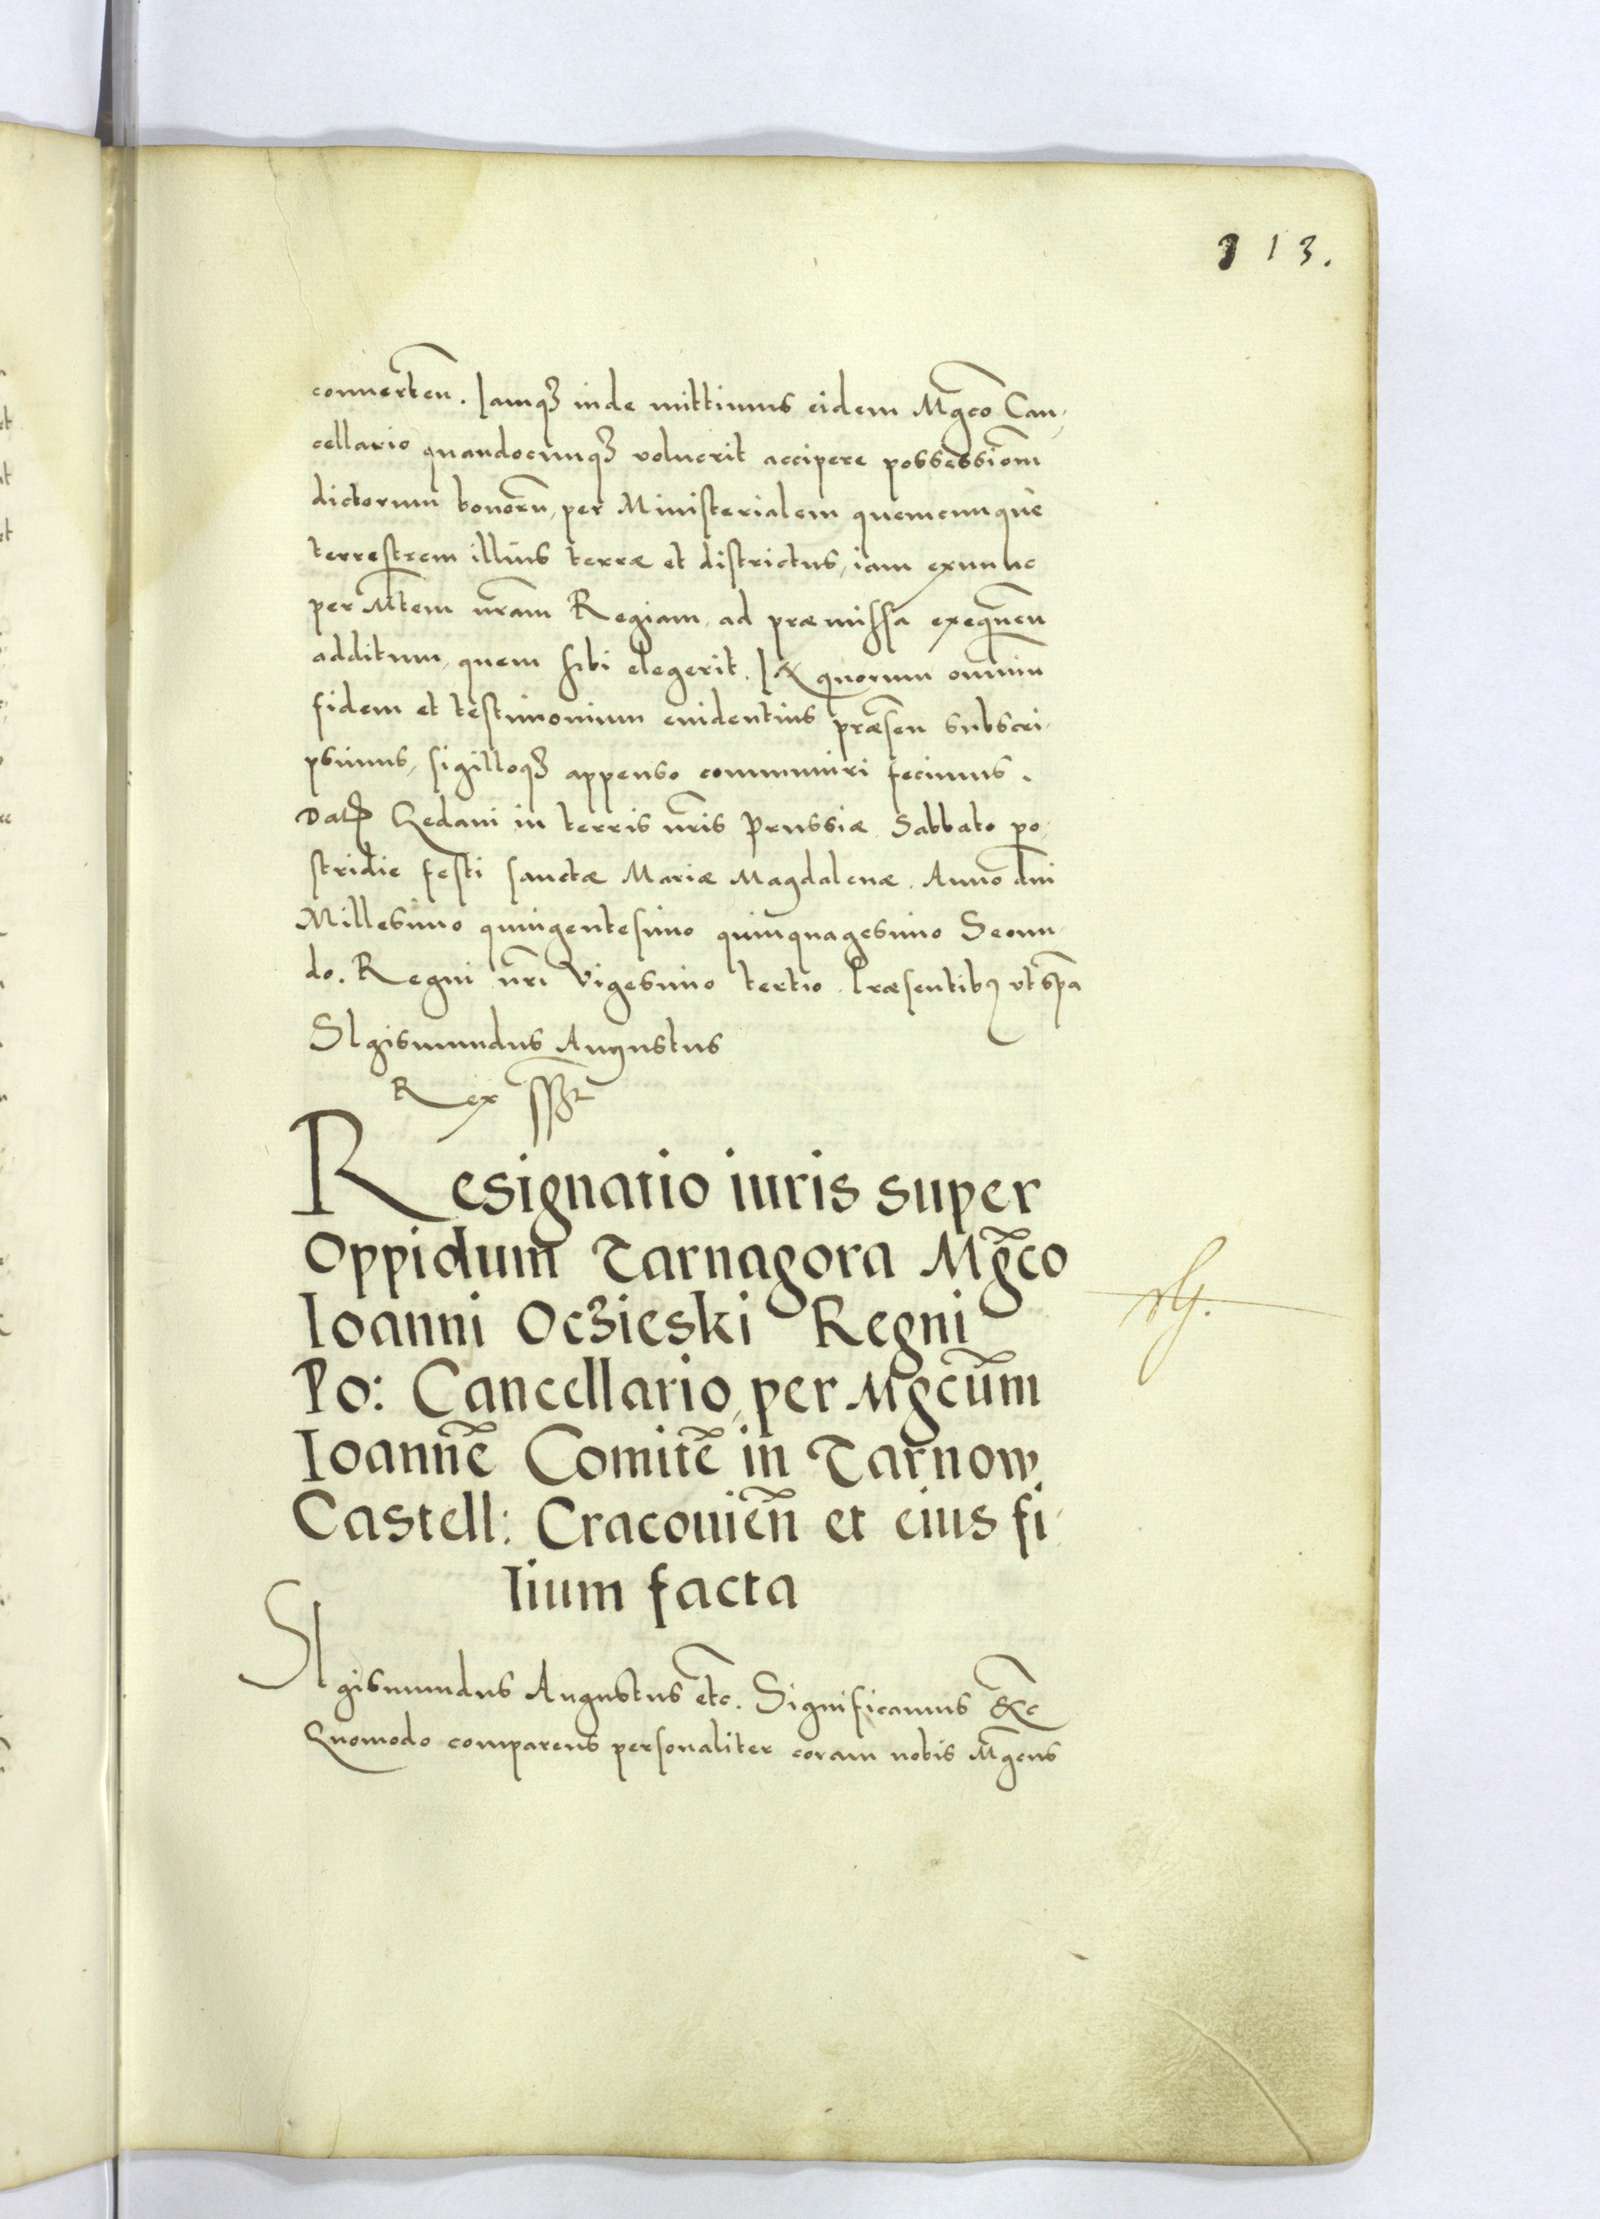 313.
conuerteñ. Iamqȝ inde mittimus eidem Mgco Can-
cellario quandocunqȝ voluerit accipere possessiom
dictorum bonorũ, per Ministerialem quemcunque
terrestrem illius terræ et districtus, iam exnunc
per Mtem nram Regiam, ad præmissa exequeñ
additum, quem sibi elegerit. In quorum omnium
fidem et testimonium euidentius præseñ subscri-
psimus, sigilloqȝ appenso communiri fecimus.
Dat Gedani in terris nris Prussiæ Sabbato po-
stridie festi sanctæ Mariæ Magdalenæ. Anno dni
Millesimo quingentesimo quinquagesimo Secun-
do. Regni nri vigesimo tertio. Præsentibꝰ vt spa
SIgismundus Augustus
Rex sst
Resignatio iuris super
Oppidum Tarnagora Mg̃co
Ioanni Ocȝieski Regni
Po: Cancellario, per Mgcũm
Ioannẽ Comitẽ in Tarnow
Castell: Cracouieñ et eius fi-
lium facta
SIgismundus Augustus etc. Significamus &c
Quomodo comparens personaliter coram nobis Mgcus